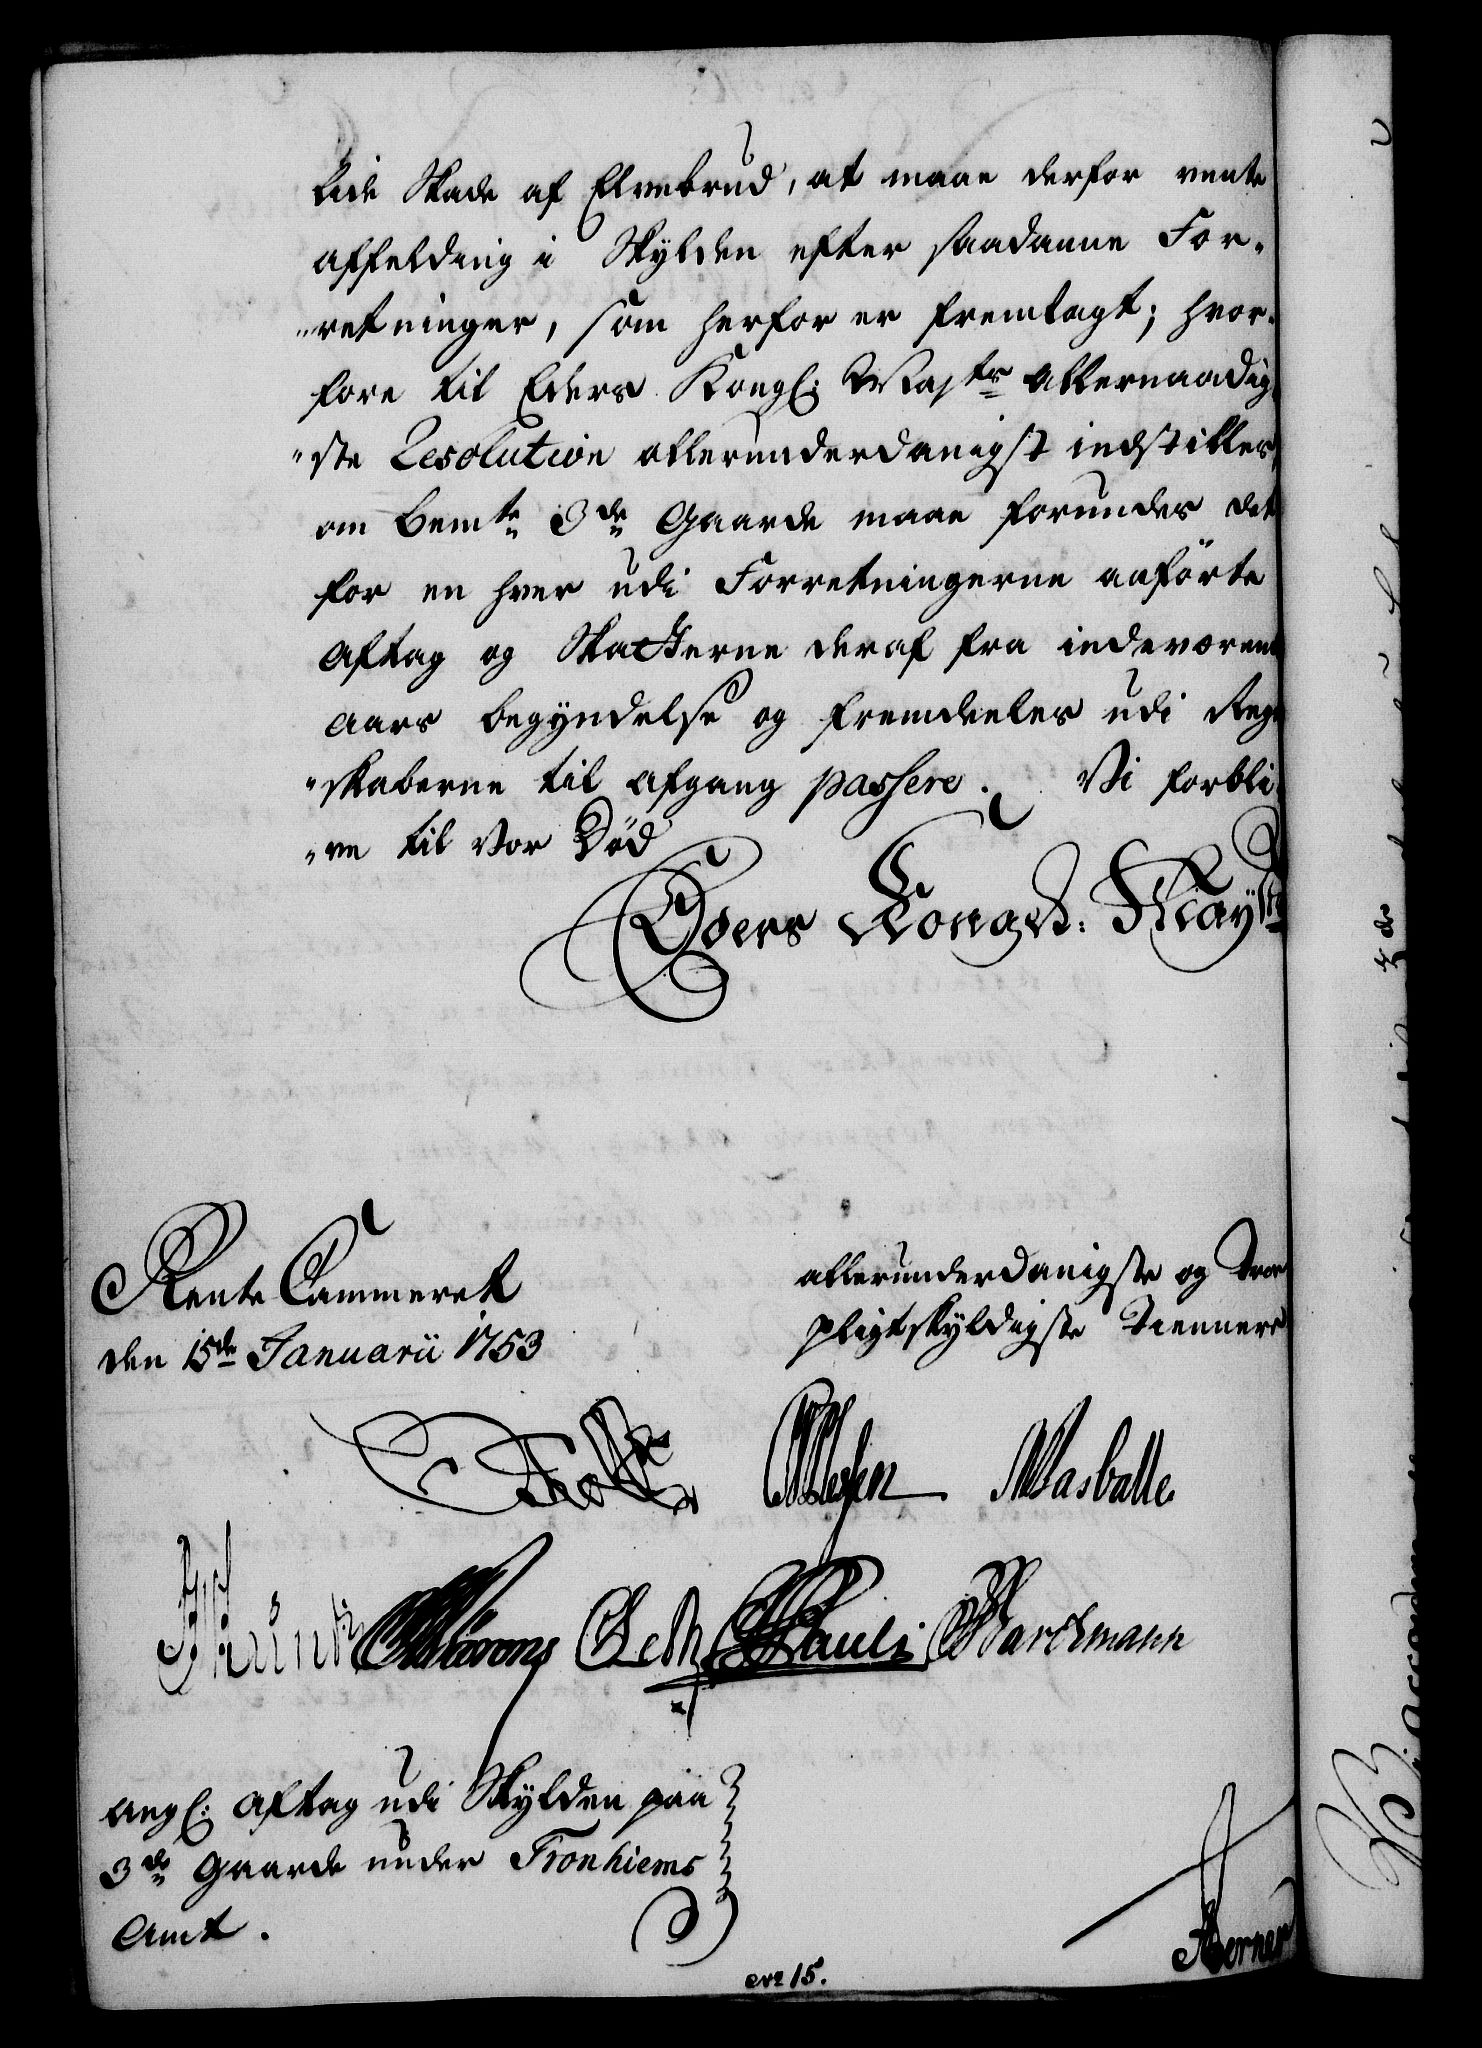 lide Skade af Elvebrud, at maae derfor vente
affelding i Skylden efter saadanne For-
"retninger, som herfor er fremlagt; hvor-
fore til Eders Kongl: Maj<sup>ts</sup> allernaadig
"ste Resolution allerunderdanigst indstilles,
om bem<sup>te</sup> 3<sup>de</sup> Gaarde maae forundes det
for en hver udi Forretningerne anførte
Aftag og Skatterne deraf fra indeværend
aars begyndelse og fremdeeles udi Reg
"skaberne til afgang passere. Vi forbli
"ve til vor Død
Eders Kongel: May<sup>ts</sup>
Rente Cammeret
den 15<sup>de</sup> Januarii 1753
allerunderdanigste og troe
pligtskyldigste Tienere
Holst
Masballe
Leth Pauli Barchmann
angl: Aftag udi Skylden paa
3<sup>de</sup> Gaarde under Tronhiems
Amt.
Berner
No 15.